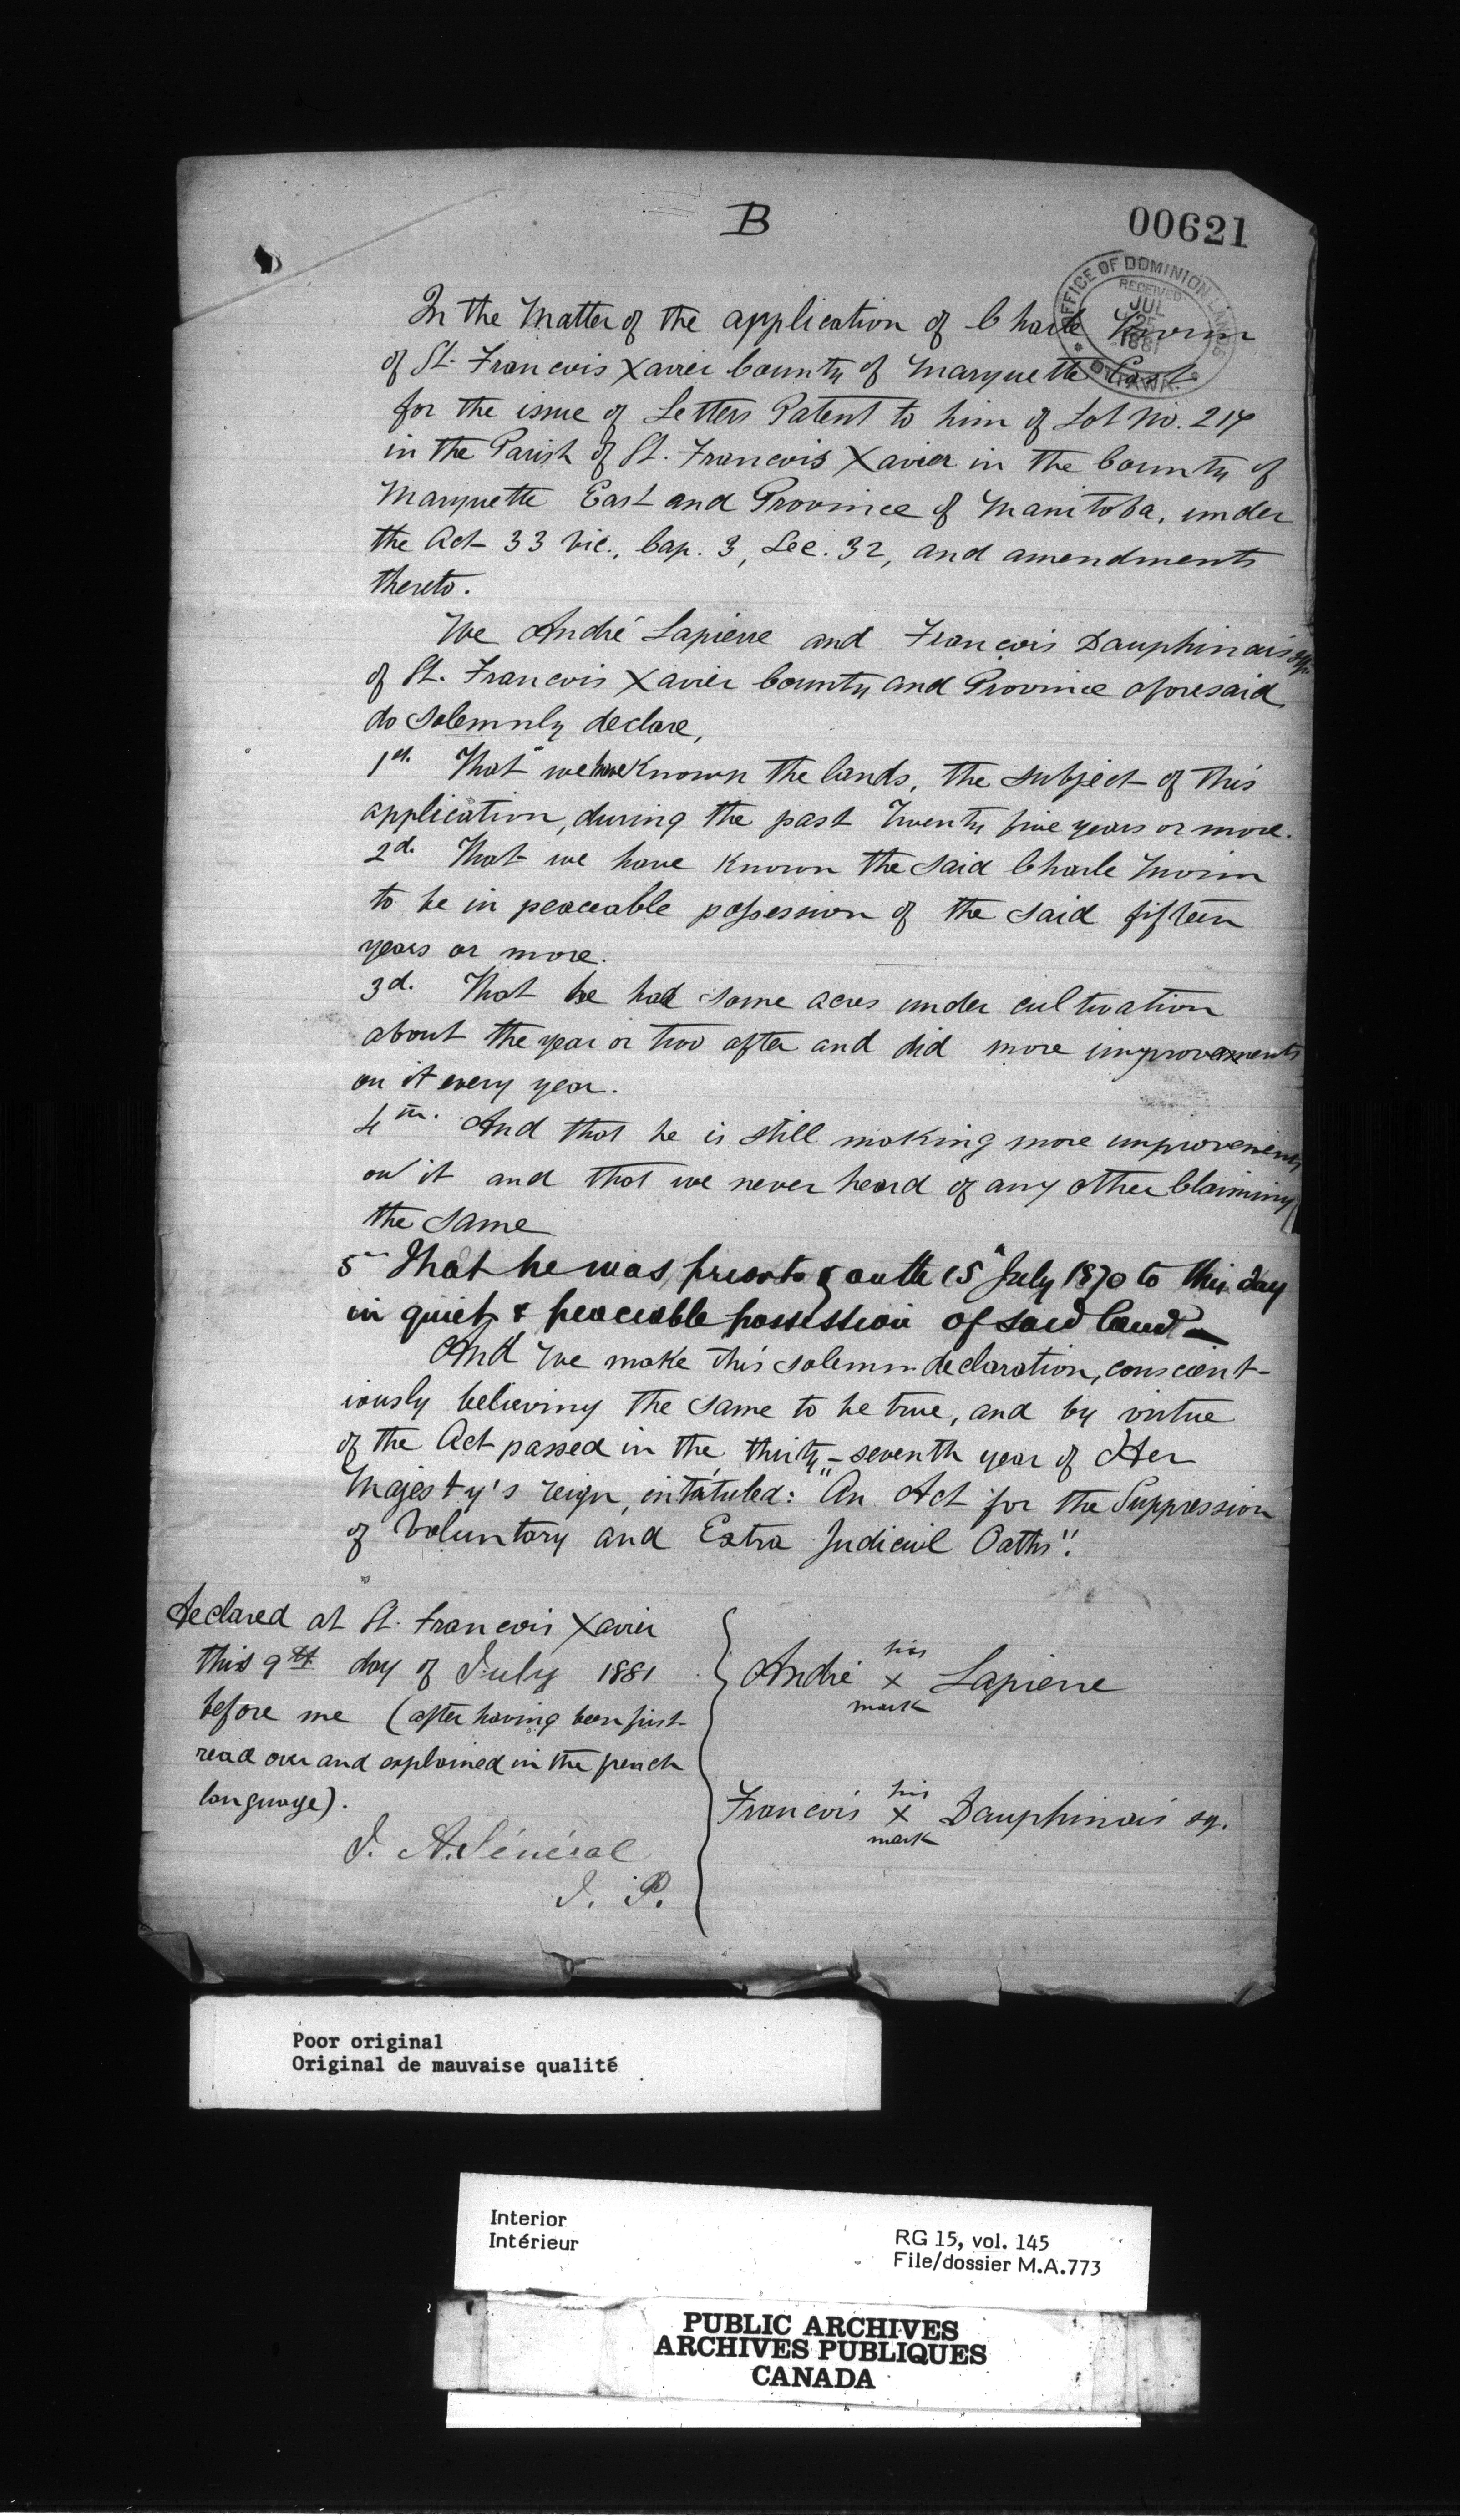 B
00621
OFFICE OF DOMINION LANDS
RECEIVED
JUL
1881
OTTAWA
In the Matter of the application of Charle Morin
of St. Francois Xavier County of Marquette East
for the issue of Letters Patent to him of Lot No. 217
in the Parish of St. Francois Xavier in the County of
Marquette East and Province of Manitoba, under
the Act 33 Vic., Cap. 3, Sec. 32, and amendments
thereto.
We André Lapierre and Francois Dauphinais
of St. Francois Xavier County and Province aforesaid
do solemnly declare,
1st. That we have known the lands, the subject of this
application, during the past Twenty five years or more.
2d. That we have known the said Charle Morin
to be in peaceable possession of the said fifteen
years or more.
3d. That he had some acres under cultivation
about the year or two after and did more improvements
on it every year.
4th. And that he is still making more improvements
on it and that we never heard of any other Claiming
the same
5th That he was prior to & on the 15" July 1870 to this day
in quiet & peaceable possession of said land
And We make this solemn declaration, conscient-
iously believing the same to be true, and by virtue
of the Act passed in the thirty-seventh year of Her
Majesty's reign, intituled: "An Act for the Suppression
of Voluntary and Extra Judicial Oaths".
Declared at St. Francois Xavier
this 9th day of July 1881
before me (after having been first
read over and explained in the french
language).
J. A. Sénécal
J. P.
his
André X Lapierre
mark
his
Francois X Dauphinais sr.
mark
Poor original
Original de mauvaise qualité
Interior
Intérieur
RG 15, vol. 145
File/dossier M.A.773
PUBLIC ARCHIVES
ARCHIVES PUBLIQUES
CANADA